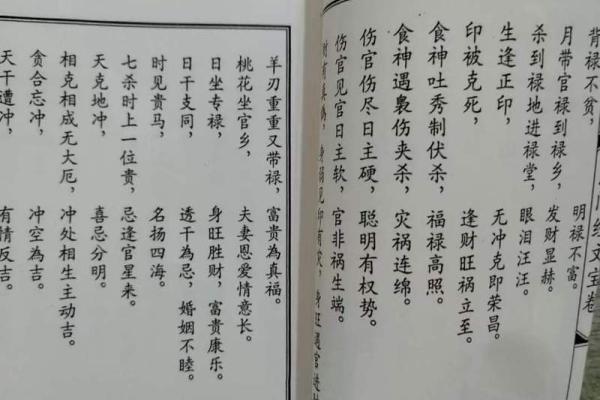 背禄不贫，明禄不富。
月带官禄到禄乡，发财显赫。
杀到禄地进禄堂，眼泪汪汪。
生逢正印，无冲克即荣昌。
印被克死，逢财旺祸立至。
食神吐秀制伏杀，福禄高照。
食神遇裊伤夹杀，灾祸连绵。
伤官伤尽日主硬，聪明有权势。
伤官见官日主软，官非祸生端。
羊刃重重又带禄，富贵為真福。
桃花坐官乡，夫妻恩爱情意长。
日坐专禄，身旺胜财，富贵康乐。
日干支同，透干為忌，婚姻不睦。
时见贵马，名扬四海。
七杀时上一位贵，忌逢官星来。
天克地冲，喜忌分明。
相克相成无大厄，冲处相生主动吉。
贪合忘冲，冲空為吉。
天干遭冲，有情反吉。